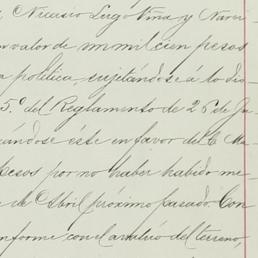 Nicasio Lugo Viña y Nava
valor de un mil cien pesos
a política, sujetándose á lo dis
5.º del Reglamento de 25 de Ju
ándose éste en favor del C. Ma
pesos por no haber habido me
e de Abril próximo pasado. Con
nforme con el avalúo del terreno,